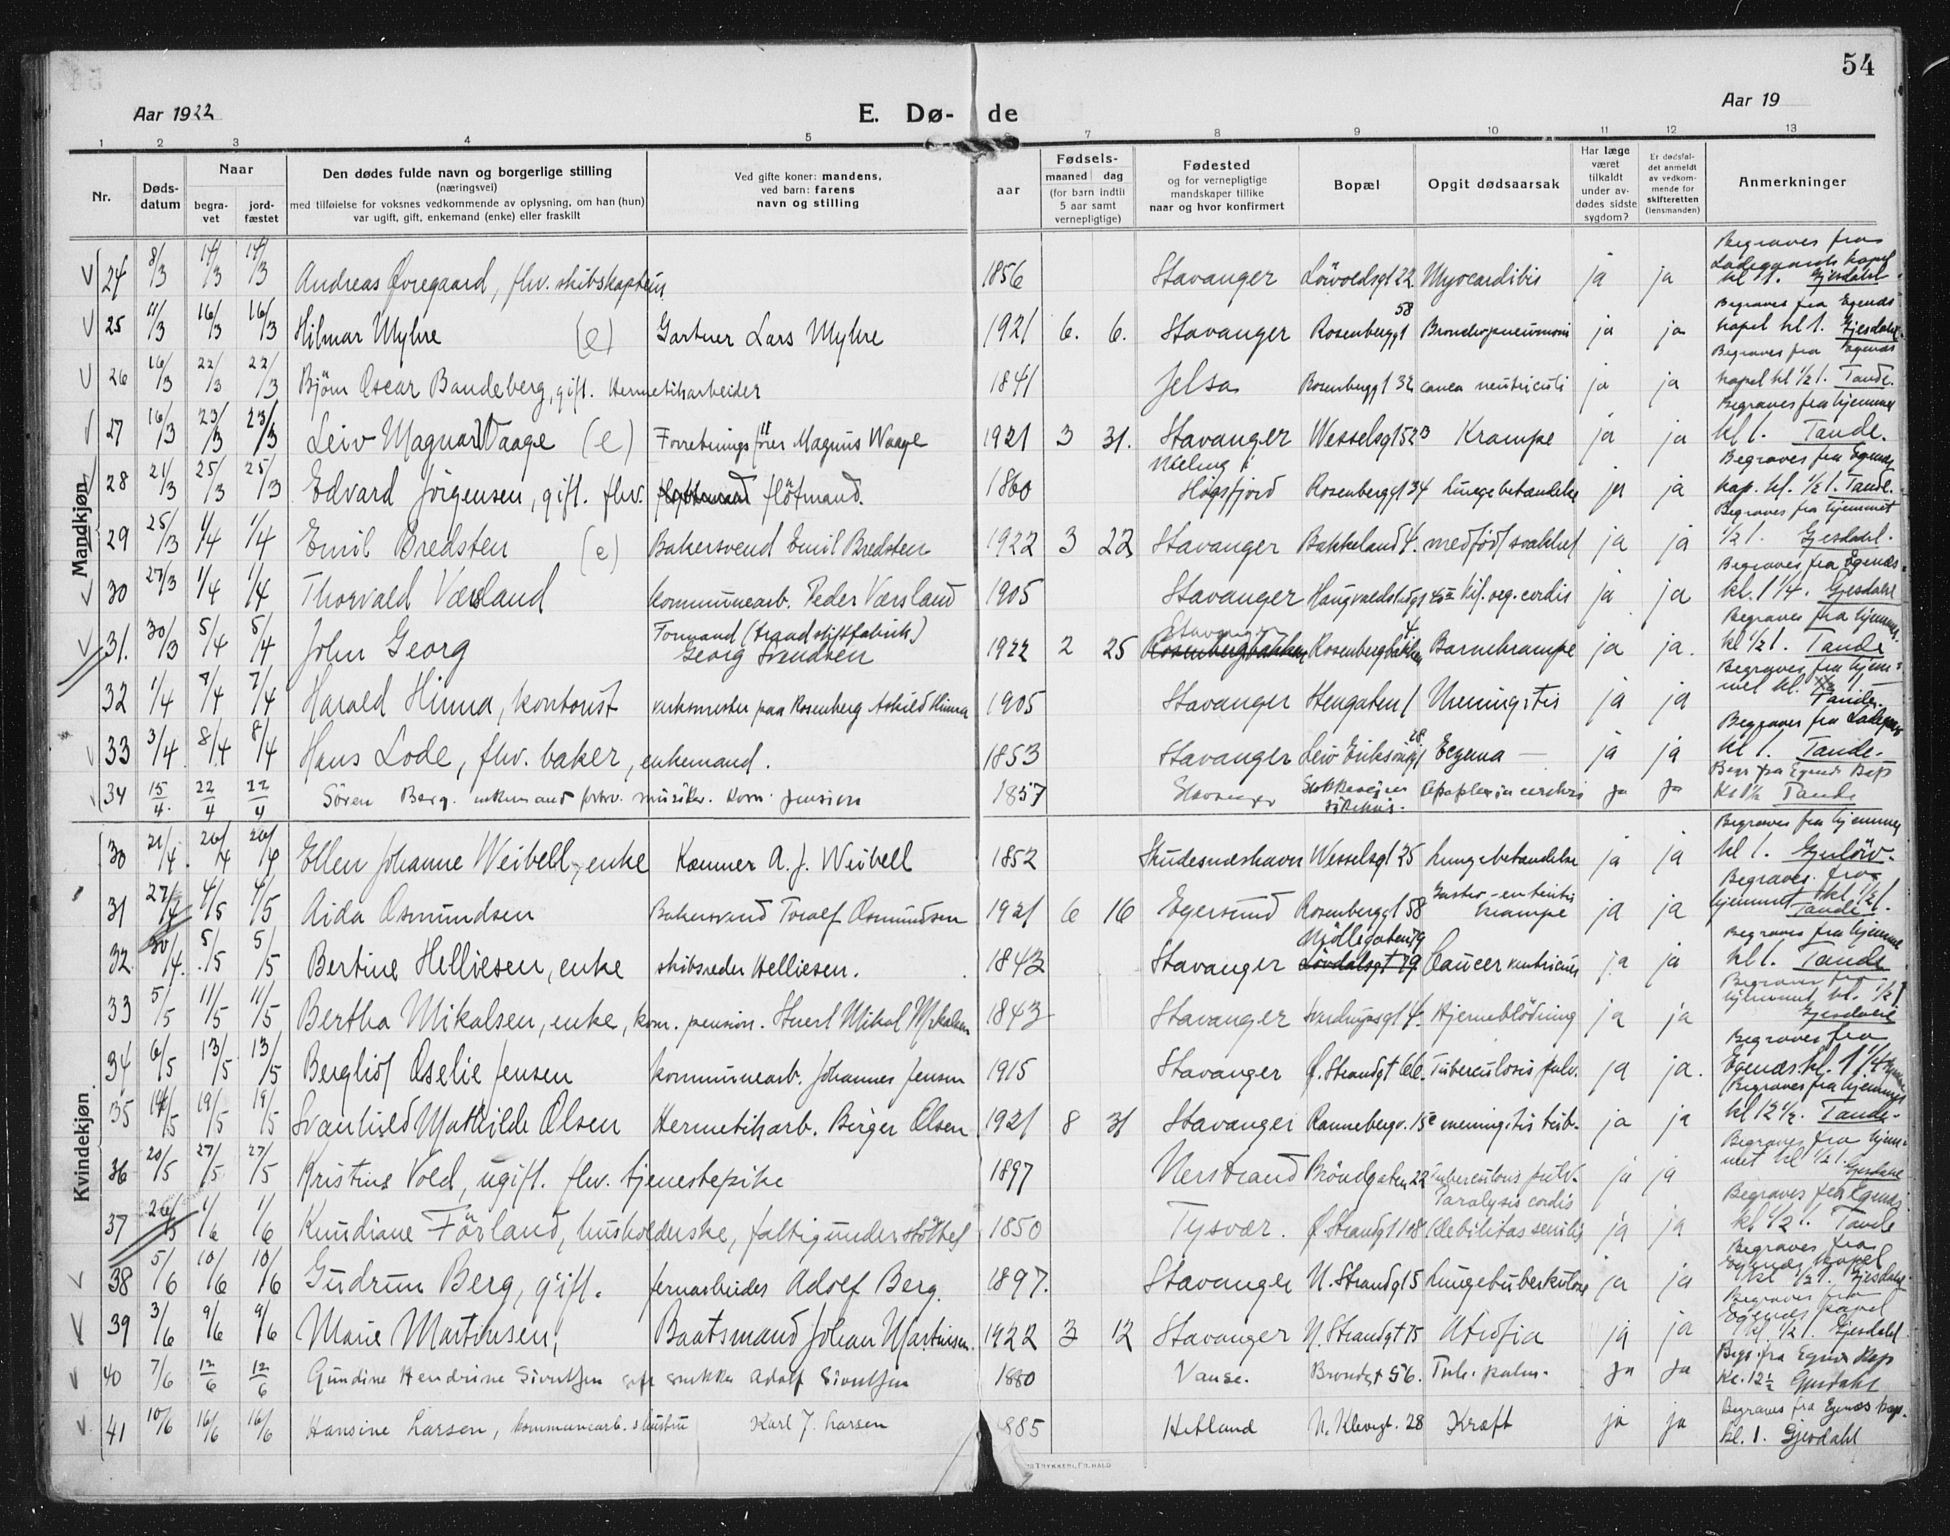 54
Aar 1922
E. Dø- de
Aar 19
1 2 3 4 5 6 7 8 9 10 11 12 13
Nr.
Døds-datum
Naar
begra-vet
jord-fæstet
Den dødes fulde navn og borgerlige stilling
(næringsvei)
med tilføielse for voksnes vedkommende av oplysning, om han (hun)
var ugift, gift, enkemand (enke) eller fraskilt
Ved gifte koner: mandens,
ved barn: farens
navn og stilling
Fødsels-
aar
maaned dag
(for barn indtil
5 aar samt
vernepligtige)
Fødested
og for vernepligtige
mandskaper tillike
naar og hvor konfirmert
Bopæl
Opgit dødsaarsak
Har læge
været
tilkaldt
under av-
dødes sidste
sygdom?
Er dødsfal-
det anmeldt
av vedkom-
mende for
skifteretten
(lensmanden)
Anmerkninger
Mandkjøn
24 8/3 14/3 14/3 Andreas Øvregaard, fhv. skibskaptein 1856 Stavanger Lövvoldsgt 22. Myocarditis ja ja Begraves fra Ladegaards kapel kl 1. Gjesdahl.
25 11/3 16/3 16/3 Hilmar Myhre (e) Gartner Lars Myhre 1921 6. 6. Stavanger Rosenberggt 58 Bronchopneumoni ja ja Begraves fra Egenæs kapel kl 1. Gjesdahl.
26 16/3 22/3 22/3 Bjørn Oscar Bandeberg, gift. Hermetikarbeider 1841 Jelsa Rosenberggt 32 cancer ventriculi ja ja Begraves fra Egenæs kapel kl 1/2 1. Tande.
27 16/3 23/3 23/3 Leiv Magnar Waage (e) Forretningsfører Magnus Waage 1921 3 31. Stavanger Wesselsgt 52 B Krampe ja ja Begraves fra hjemmet kl 1. Tande.
28 21/3 25/3 25/3 Edvard Jörgensen, gift. fhv. flötmand. 1860 Høgsfjord Rosenberggt 34 Lungebetændelse ja ja Begraves fra Egenæs kap. kl. 1/2 1. Tande.
29 25/3 1/4 1/4 Emil Bredsten (e) Bakersvend Emil Bredsten 1922 3 22 Stavanger Bakkeland 4. medfödt svakhet ja ja Begraves fra hjemmet 1/2 1. Gjesdahl.
30 27/3 1/4 1/4 Thorvald Værsland kommunearb. Peder Værsland 1905 Stavanger Haugvaldstadsgt Vit. org. cordis ja ja Begraves fra Egenæs. kl. 1 1/4. Gjesdahl
31. 30/3 5/4 5/4 John Georg Formand (traadstiftfabrik.) Georg Svendsen 1922 2 25 Stavanger Rosenbergbakken 4 Barnekrampe ja ja. Begraves fra hjemmet. kl 1/2 1. Tande
32 1/4 7/4 7/4 Harald Hinna, kontorist verksmester paa Rosenberg Askild Hinna 1905 Stavanger Stengaten 1 Meningitis ja ja Begraves fra hjemmet kl. Tande.
33 3/4 8/4 8/4 Hans Lode, fhv. baker, enkemand. 1853 Stavanger Leiv Eriksøngt 28 Eczema — ja ja Begraves fra Ladegaard kl 1. Tande.
34 15/4. 22/4 22/4 Sören Berg. enkemand forhv. musiker. kom. pension 1857 Stavanger Stokkaveiens sykehus. Apoplexia cerebri ja ja Begr. fra Egenæs Kap Kl 1 1/2 Tande
Kvindekjøn.
30 21/4. 26/4 26/4 Ellen Johanne Weibell, enke Kæmner A. J. Weibell 1852 Skudesneshavn Wesselsgt 25 Lungebetændelse ja ja Begraves fra hjemmet kl 1. Gjerlöw.
31 27/4 4/5 4/5 Aida Osmundsen Bakersvend Toralf Osmundsen 1921 6 16 Egersund Rosenberggt 58 Gastro-enteritis Krampe ja ja Begraves fra hjemmet kl 1/2 1. Tande
32. 30/4. 5/5 5/5 Bertine Helliesen, enke skibsreder Helliesen. 1843 Stavanger Møllegaten 79 Lövdalsgt 79. Cancer ventriculi ja ja Begraves fra hjemmet kl 1. Tande
33 5/5 11/5 11/5 Bertha Mikalsen, enke, kom. pension. Stuert Mikal Mikalsen 1843 Stavanger Sverdrupsgt 4. Hjerneblödning ja ja Begraves fra hjemmet kl. 1/2 1 Gjesdahl
34 6/5 13/5 13/5 Bergliot Oselie Jensen kommunearb. Johannes Jensen 1915 Stavanger Ø. Strandgt 66. Tuberculosis pulm. ja ja. Begraves fra Egenæs kl. 1 1/4.
35 14/5 19/5 19/5 Svanhild Mathilde Olsen Hermetikarb. Birger Olsen 1921 8 31 Stavanger Rannebergv. 15 c meningitis tub. ja ja Begraves fra hjemmet kl 12 1/2. Tande.
36 20/5 27/5 27/5 Kristine Vold, ugift. fhv. tjenestepike 1897 Nerstrand Bröndgaten 22 Tuberculosis pulm. ja ja Begraves fra hjemmet kl 1/2 1. Gjesdahl
37 26/5 1/6 1/6 Knudiane Förland, husholderske, fattigunderstöttet 1850 Tysvær. Ø. Strandgt 108 Paralysis cordis Debilitas senilis ja ja Begraves fra Egenæs. kl 1/2 1. Tande
38 5/6 10/6 10/6 Gudrun Berg, gift. jernarbeider Adolf Berg. 1897. Stavanger N. Strandgt 5 Lungetuberkulose ja ja Begraves fra Egenæs kapel kl 1/2 1. Gjesdahl.
39 3/6 9/6 9/6 Marie Martinsen, Baatsmand Johan Martinsen. 1922 3 12 Stavanger N. Strandgt 15 Atrofia ja ja Begraves fra Egenæs kapel kl. 1/2 1. Gjesdahl
40 7/6 12/6 12/6 Gundine Hendrine Sivertsen gift snekker Adolf Sivertsen 1880 Vanse. Brøndgt 56. Tub. pulm. ja ja Begr. fra Egenæs Kap Kl. 12 1/2 Gjesdahl
41 10/6 16/6 16/6 Hansine Larsen, kommunearb. hustru Karl J. Larsen 1885 Hetland N. Klevegt. 28 Kræft ja ja Begraves fra Egenæs kap. kl. 1. Gjesdahl
TRYKKERI, FR. HALD